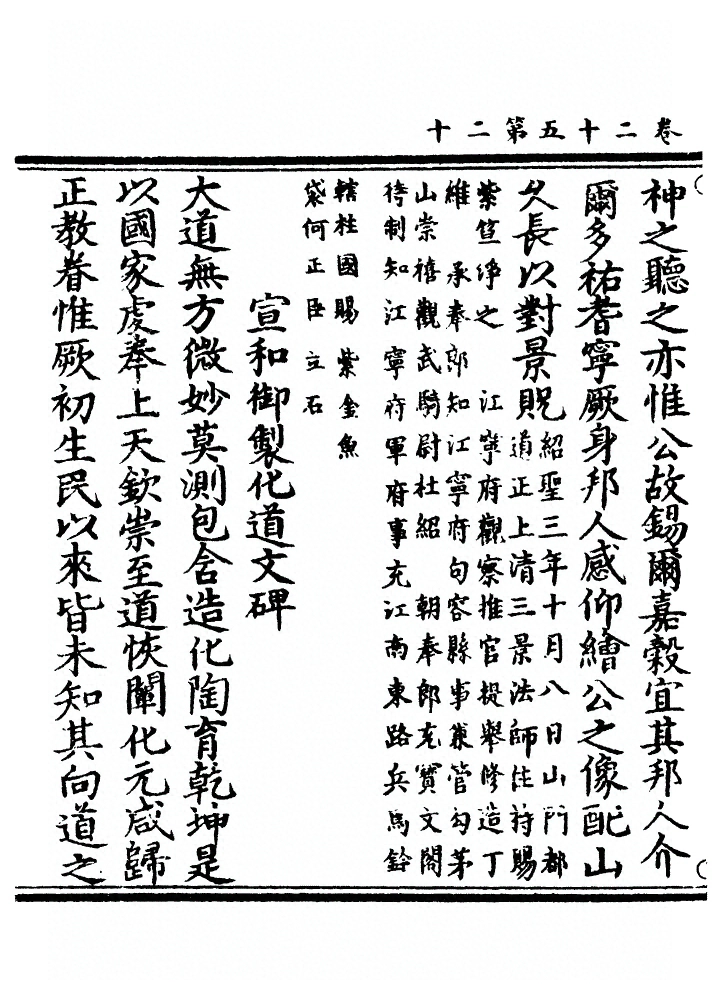 卷二十五第二十
神之聽之亦惟公故錫爾嘉穀宜其邦人介
爾多祐耆寧厥身邦人感仰繪公之像配山
乆長以對景貺
紹聖三年十月八日山門都
道正上清三景法師住持賜
紫笪淨之 江寧府觀察推官提舉修造丁
維 承奉郎知江寧府句容縣事兼管勾茅
山崇禧觀武騎尉杜紹 朝奉郎充寶文閣
待制知江寧府軍府事充江南東路兵馬鈐
轄柱國賜紫金魚
袋何正臣立石
宣和御製化道文碑
大道無方微妙莫測包含造化陶育乾坤是
以國家虔奉上天欽崇至道恢闡化元咸歸
正教眷惟厥初生民以來皆未知其向道之